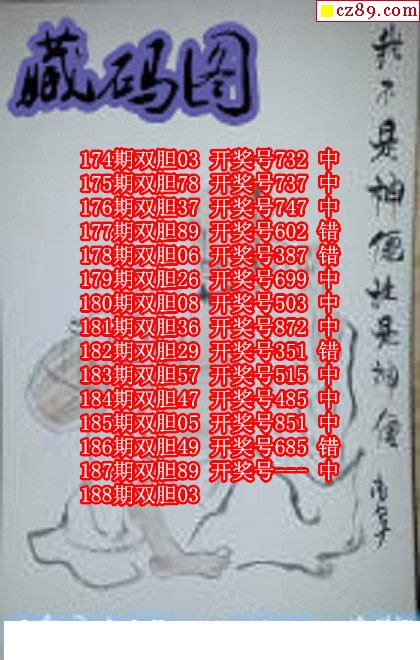 cz89.com
藏码图
174期双胆03 开奖号732 中
175期双胆78 开奖号737 中
176期双胆37 开奖号747 中
177期双胆89 开奖号602 错
178期双胆06 开奖号387 错
179期双胆26 开奖号699 中
180期双胆08 开奖号503 中
181期双胆36 开奖号872 中
182期双胆29 开奖号351 错
183期双胆57 开奖号515 中
184期双胆47 开奖号485 中
185期双胆05 开奖号851 中
186期双胆49 开奖号685 错
187期双胆89 开奖号--- 中
188期双胆03
我不是神仙就是神仙